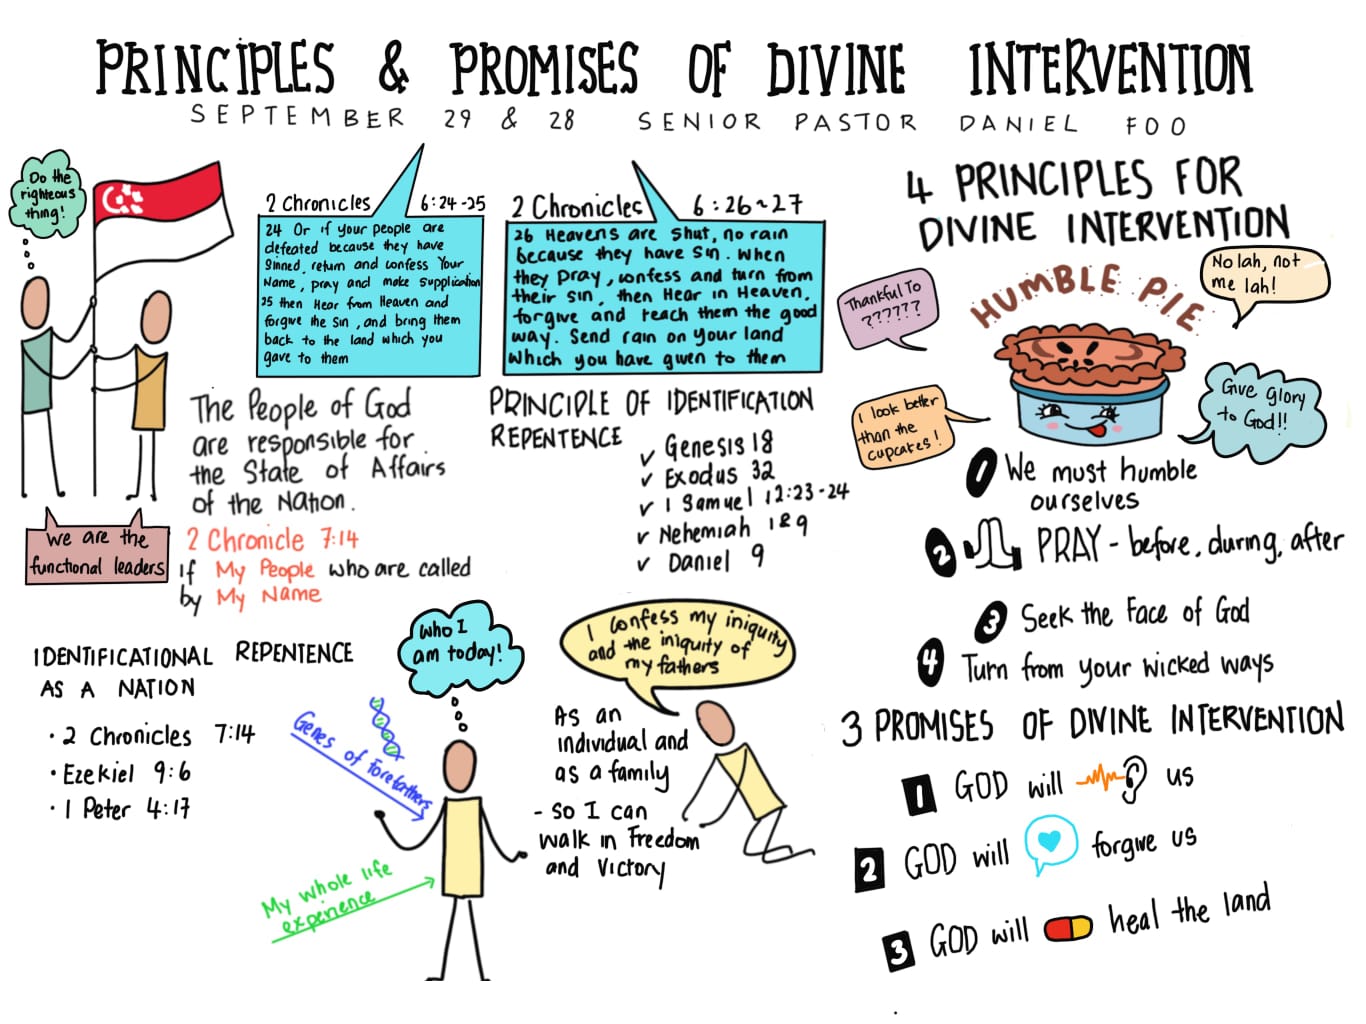 PRINCIPLES & PROMISES OF DIVINE INTERVENTION
SEPTEMBER 29 & 28 SENIOR PASTOR DANIEL FOO
Do the
righteous
thing!
2 Chronicles 6:24-25
24 Or if your people are
defeated because they have
Sinned, return and confess Your
Name, pray and make supplication
25 then Hear from Heaven and
forgive the sin, and bring them
back to the land which you
gave to them
2 Chronicles 6:26~27
26 Heavens are shut, no rain
because they have sin. When
they pray, confess and turn from
their sin, then Hear in Heaven,
forgive and teach them the good
way. Send rain on your land
which you have given to them
The People of God
are responsible for
the State of Affairs
of the Nation.
We are the
functional leaders
2 Chronicle 7:14
if My People who are called
by My Name
PRINCIPLE OF IDENTIFICATION
REPENTENCE
✓ Genesis 18
✓ Exodus 32
✓ 1 Samuel 12:23-24
✓ Nehemiah 1&9
✓ Daniel 9
IDENTIFICATIONAL REPENTENCE
AS A NATION
• 2 Chronicles 7:14
• Ezekiel 9:6
• 1 Peter 4:17
who I
am today!
Genes of Forefathers
My whole life
experience
I confess my iniquity
and the iniquity of
my fathers
As an
individual and
as a family
- so I can
walk in Freedom
and Victory
4 PRINCIPLES FOR
DIVINE INTERVENTION
HUMBLE PIE
Thankful To
??????
No lah, not
me lah!
I look better
than the
cupcakes!
Give glory
to God!!
1 We must humble
ourselves
2 PRAY - before, during, after
3 Seek the Face of God
4 Turn from your wicked ways
3 PROMISES OF DIVINE INTERVENTION
1 GOD will us
2 GOD will forgive us
3 GOD will heal the land